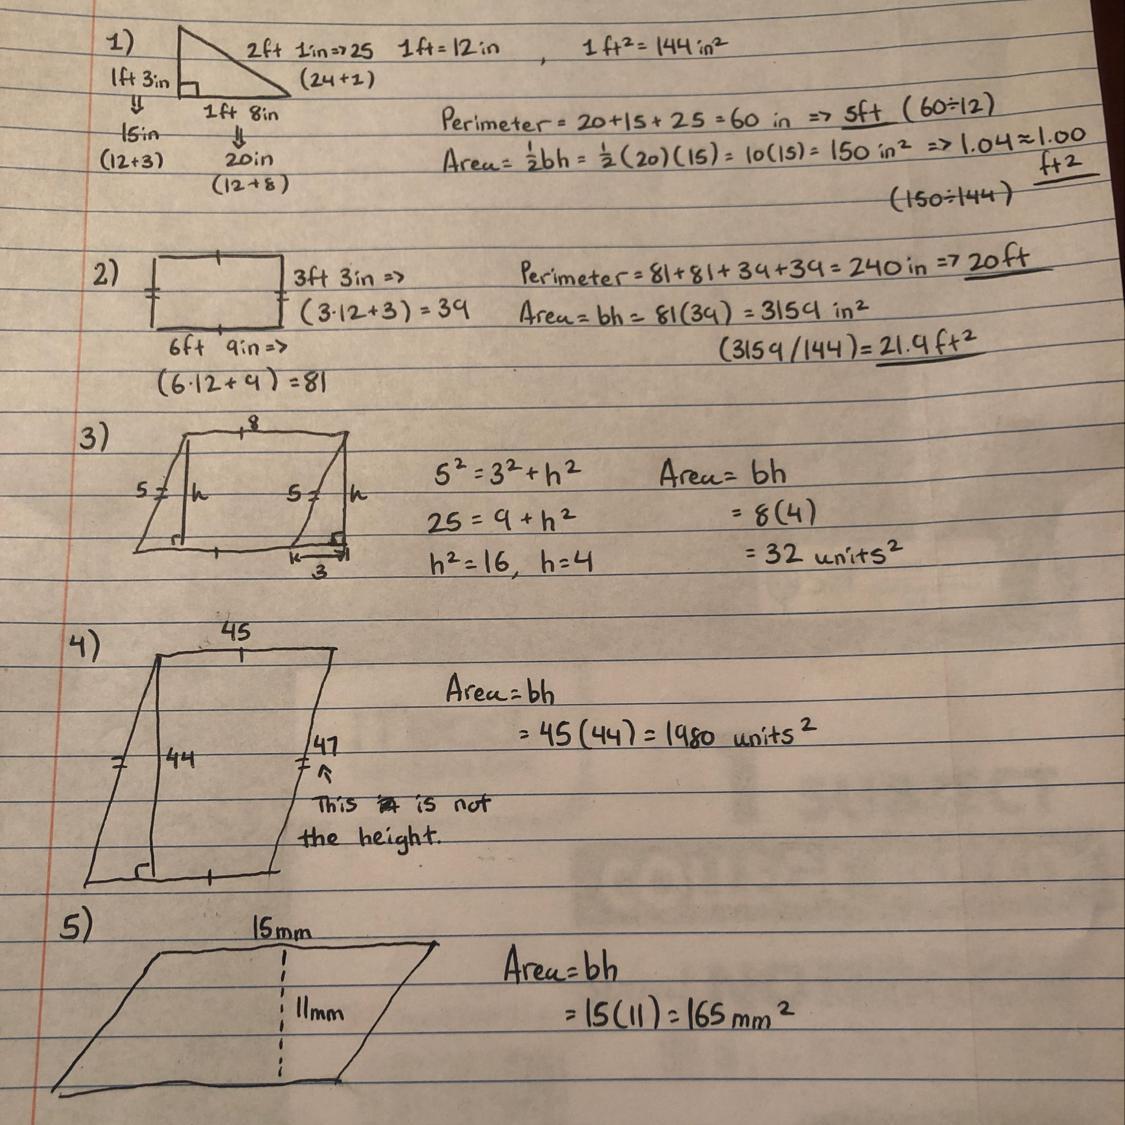 1) 2ft 1in => 25 1ft = 12in , 1 ft² = 144 in²
1ft 3in (24+1)
⇓ 1ft 8in
15in ⇓
(12+3) 20in
(12+8)
Perimeter = 20+15+25 = 60 in => 5ft (60÷12)
Area = ½bh = ½(20)(15) = 10(15) = 150 in² => 1.04 ≈ 1.00
ft2
(150÷144)
2) 3ft 3in =>
(3·12+3) = 39
6ft 9in =>
(6·12+9) = 81
Perimeter = 81+81+39+39 = 240 in => 20ft
Area = bh = 81(39) = 3159 in²
(3159/144) = 21.9 ft²
3) 8
5 h 5 h
3
5² = 3² + h²
25 = 9 + h²
h² = 16, h = 4
Area = bh
= 8(4)
= 32 units²
4) 45
44 47
↑
This is not
the height.
Area = bh
= 45(44) = 1980 units²
5) 15mm
11mm
Area = bh
= 15(11) = 165 mm²